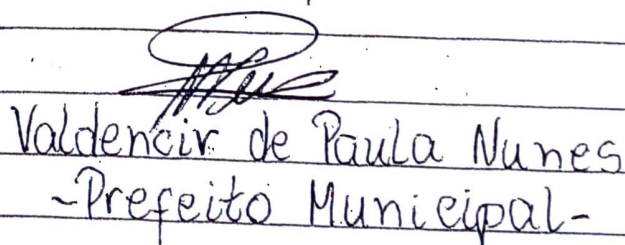 Valdencir de Paula Nunes
-Prefeito Municipal-